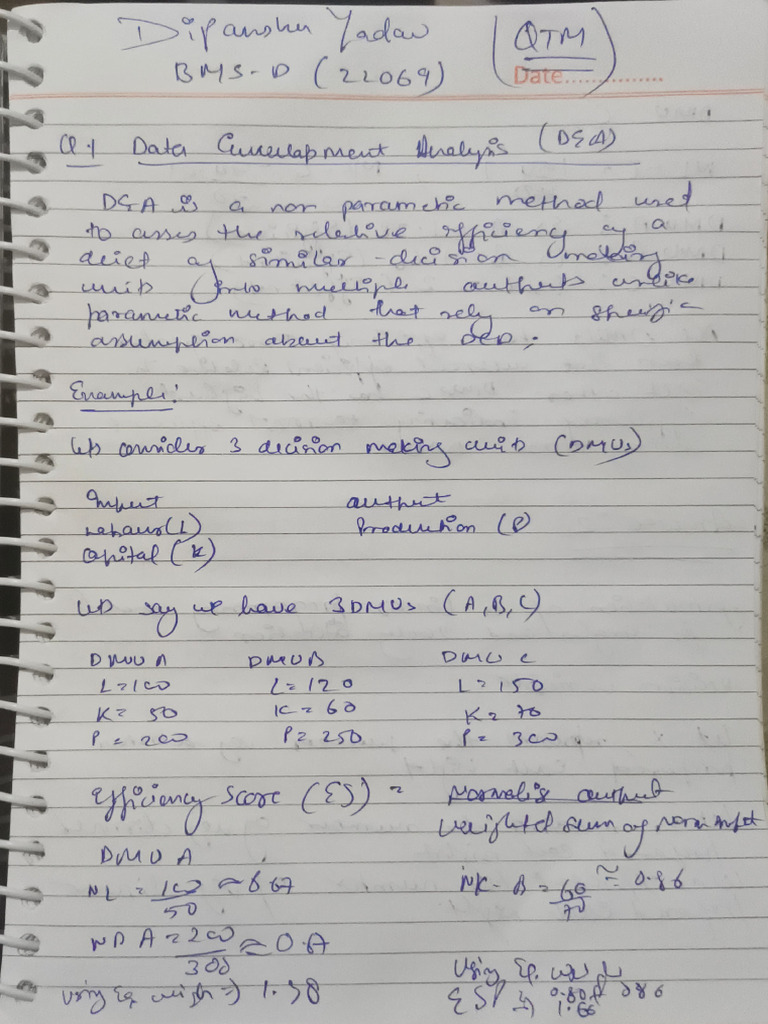 Dipanshu Yadav
BMS-D (22069)
(QTM)
Date...............
Q.1 Data Envelopment Analysis (DEA)
DEA is a non parametric method used
to asses the relative efficiency of a
of similar decision making
unit into multiple outputs unlike
parametric method that rely on specific
assumption about the
Example:
consider 3 decision making unit (DMUs)
Input output
labour (L) Production (P)
Capital (K)
say we have 3 DMUs (A, B, C)
DMU A DMU B DMU C
L=100 L=120 L=150
K=50 K=60 K=70
P=200 P=250 P=300
Efficiency Score (ES) = output
weighted sum of
DMU A
NL = 100/50 ≈ NK-B = 60/70 ≈ 0.86
200/300 ≈
using Eq. => 1.38 Using Eq.